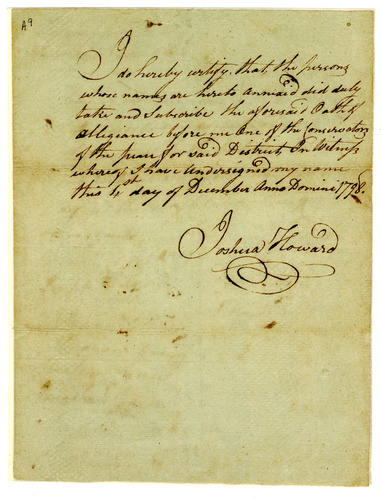 A9
I do hereby certify, that, the persons
whose names are hereto Annex'd did duly
take and Subscribe the aforesaid Oath of
Allegiance before me One of the Conservators
of the peace for said District, In Witness
whereof I have Undersigned my name
this 1st day of December Anno Domini 1798.
Joshua Howard